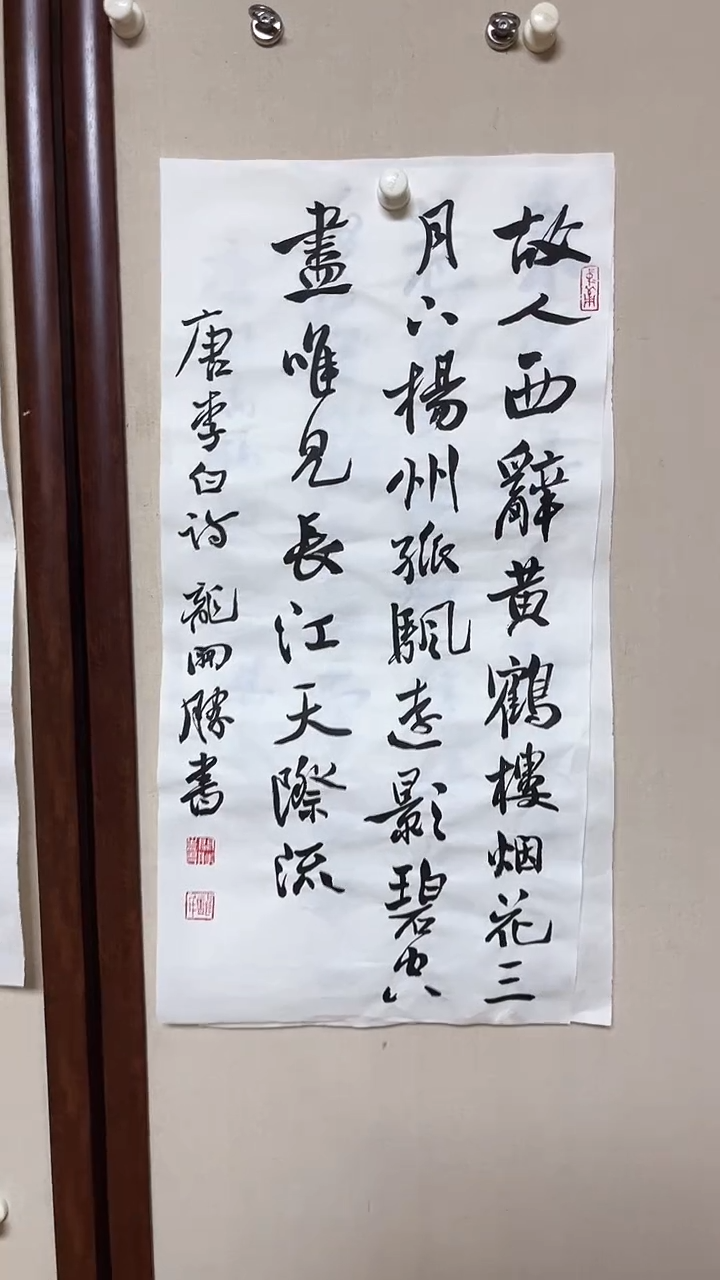 故人西辭黄鶴樓烟花三
月下楊州孤颿遠影碧空
盡唯見長江天際流
唐李白詩龍開勝書